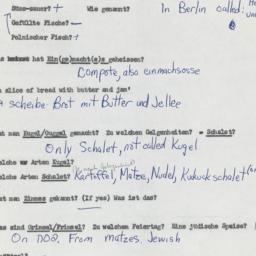 Süss-sauer? + Wie genannt? In Berlin called:
Gefüllte Fische? -
Polnischer Fisch? +
hat Ein(ge)macht(e)s geheissen?
Compote, also einmachsosse
slice of bread with butter and jam'
scheibe Brot mit Butter und Jellee
at man Kugel/Guggel gemacht? Zu welchen Gelegenheiten? = Schalet?
Only Schalet, not called Kugel
lche Arten Kugel?
lche Arten Schalet? Kartoffel, Matze, Nudel, Kukuckschalet
at man Zimmes gekannt? (If yes) Was ist das?
as sind Grimsel/Frimsel? Zu welchem Feiertag? Eine jüdische Speise?
On DO2. From matzes, Jewish